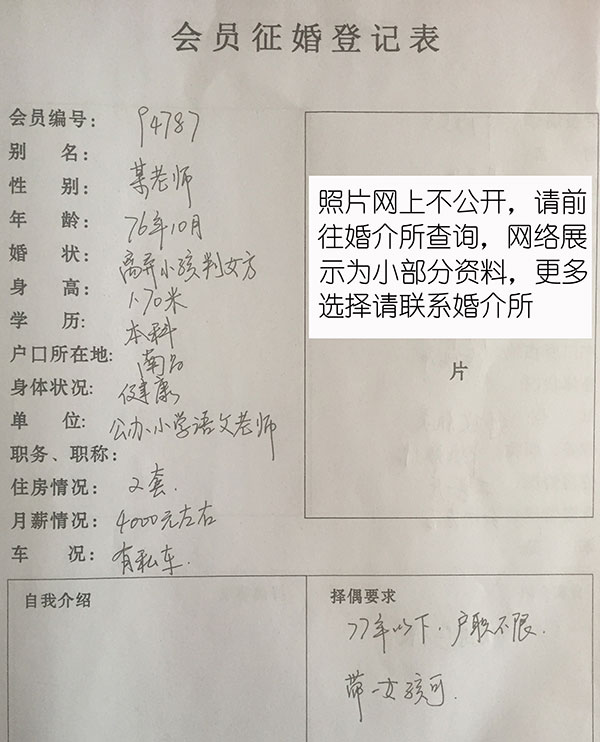 会员征婚登记表
会员编号: 94787
别 名:
某老师
性 别:
年 龄: 76年10月
婚 状: 离异小孩判女方
身 高: 1.70米
学 历: 本科
户口所在地: 南昌
身体状况: 健康
单 位: 公办小学语文老师
职务、职称:
住房情况: 2套.
月薪情况: 4000元左右
车 况: 有私车.
照片网上不公开，请前
往婚介所查询，网络展
示为小部分资料，更多
选择请联系婚介所
片
自我介绍
择偶要求
77年以下.户职不限.
带一女孩可.